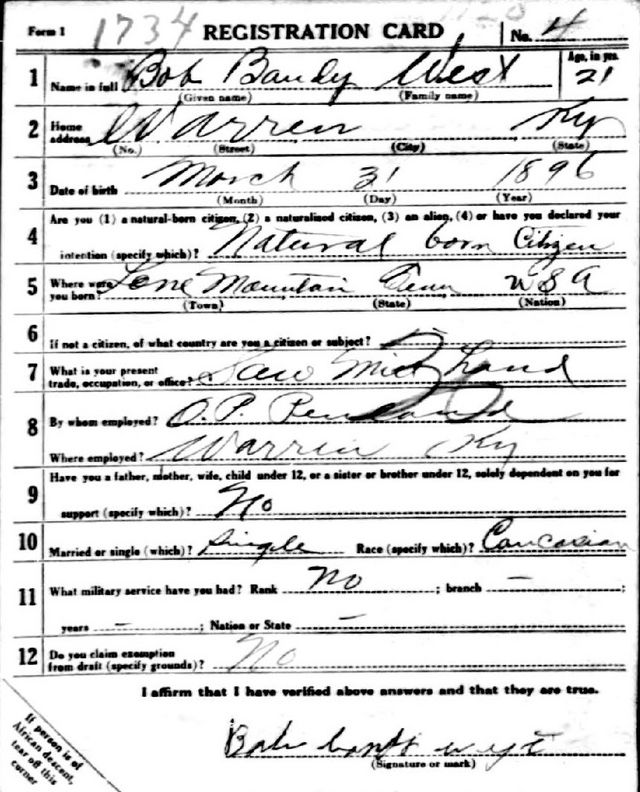 Form 1 1734 REGISTRATION CARD No. 4
1 Name in full Bob Bandy West Age, in yrs. 21
(Given name) (Family name)
2 Home address Warren Ky
(No.) (Street) (City) (State)
3 Date of birth March 31 1896
(Month) (Day) (Year)
Are you (1) a natural-born citizen, (2) a naturalized citizen, (3) an alien, (4) or have you declared your
4 intention (specify which)? Natural born Citizen
5 Where were you born? Lone Mountain Tenn USA
(Town) (State) (Nation)
6 If not a citizen, of what country are you a citizen or subject? —
7 What is your present trade, occupation, or office? Saw Mill Hand
8 By whom employed? O.P.
Where employed? Warren Ky
Have you a father, mother, wife, child under 12, or a sister or brother under 12, solely dependent on you for
9 support (specify which)? No
10 Married or single (which)? Single Race (specify which)? Caucasian
11 What military service have you had? Rank No ; branch — ;
years — ; Nation or State —
12 Do you claim exemption from draft (specify grounds)? No
I affirm that I have verified above answers and that they are true.
If person is of
African descent,
tear off this
corner
(Signature or mark)